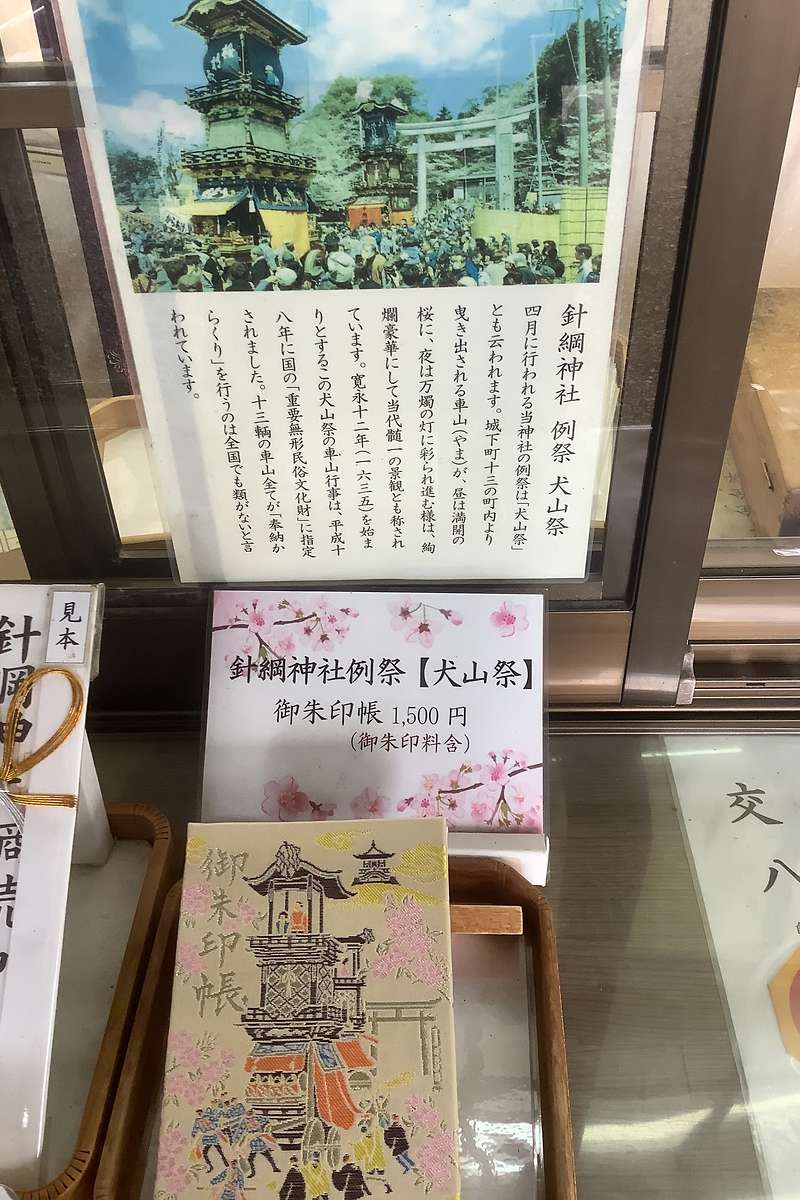 針綱神社 例祭 犬山祭
四月に行われる当神社の例祭は「犬山祭」
とも云われます。城下町十三の町内より
曳き出される車山(やま)が、昼は満開の
桜に、夜は万燭の灯に彩られ進む様は、絢
爛豪華にして当代髄一の景観とも称され
ています。寛永十二年(一六三五)を始ま
りとするこの犬山祭の車山行事は、平成十
八年に国の「重要無形民俗文化財」に指定
されました。十三輌の車山全てが「奉納か
らくり」を行うのは全国でも類がないと言
われています。
見本
針綱神社例祭【犬山祭】
御朱印帳 1,500 円
(御朱印料含)
御朱印帳
交
八